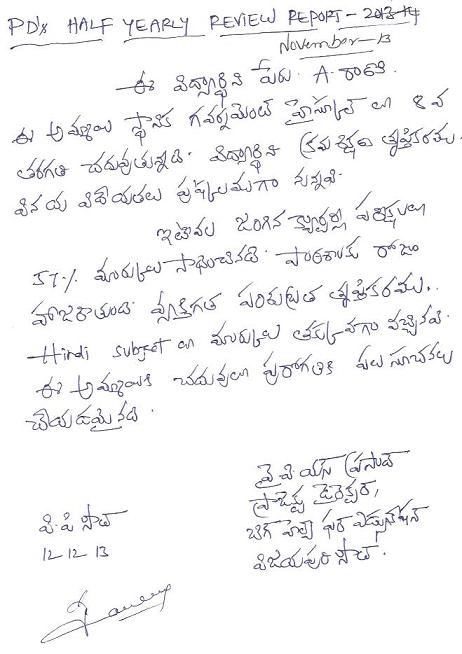 PD's HALF YEARLY REVIEW REPORT - 2013-14
November-13
ఈ విద్యార్థిని పేరు. A.
ఈ అమ్మాయి స్థానిక గవర్నమెంట్ హైస్కూల్ లో 8 వ
తరగతి చదువుతున్నది. విద్యార్థిని క్రమశిక్షణ తృప్తికరము.
వినయ విధేయతలు పుష్కలముగా వున్నవి.
ఇటీవల జరిగిన క్వార్టర్లీ పరీక్షలలు
57% మార్కులు సాధించినది. పాఠశాలకు రోజూ
హాజరౌతుంది. వ్యక్తిగత పరిశుభ్రత తృప్తికరము..
Hindi subject లో మార్కులు తక్కువగా వచ్చినవి.
ఈ అమ్మాయికి చదువులో పురోగతికి పలు సూచనలు
చేయడమైనది.
వై.పి.యస్ ప్రసాద్
ప్రాజెక్టు డైరెక్టర్,
బిగ్ హెల్ప్ ఫర్ ఎడ్యుకేషన్
విజయపురి సౌత్.
వి. పి సౌత్
12 12 13